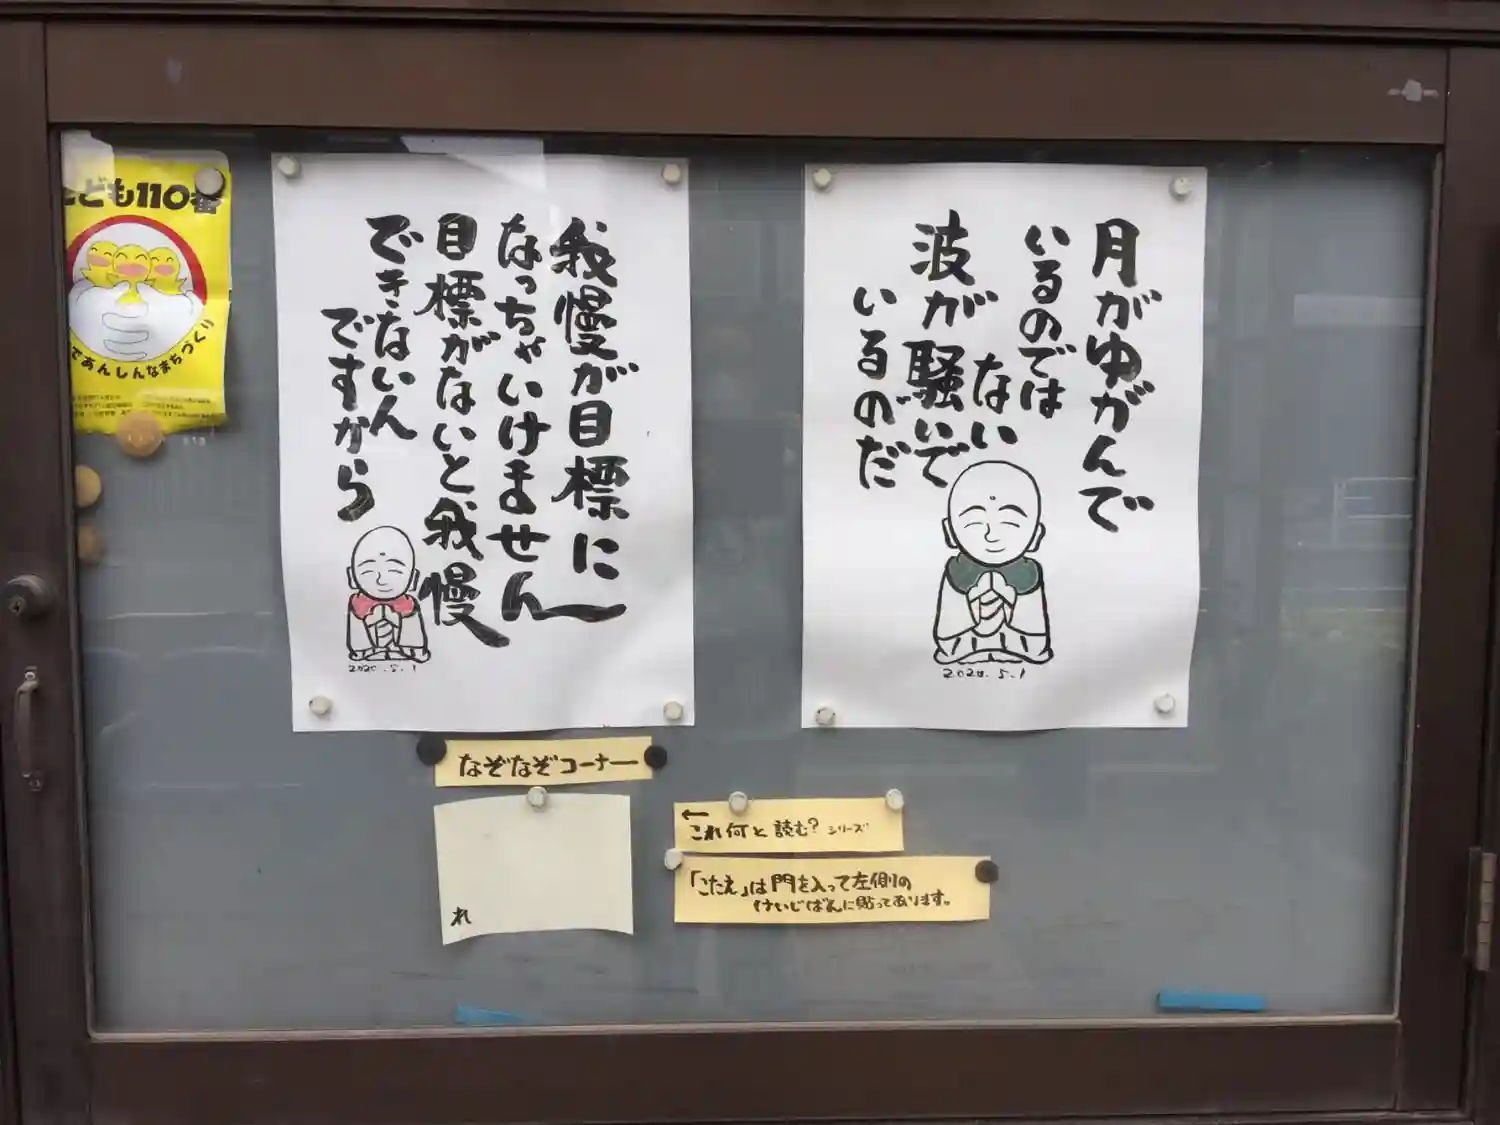 こども110番
であんしんなまちづくり
月がゆがんで
いるのでは
ない
波が騒いで
いるのだ
2020.5.1
我慢が目標に
なっちゃいけません
目標がないと我慢
できないん
ですから
2020.5.1
なぞなぞコーナー
れ
←
これ何と読む?シリーズ
「こたえ」は門を入って左側の
けいじばんに貼ってあります。